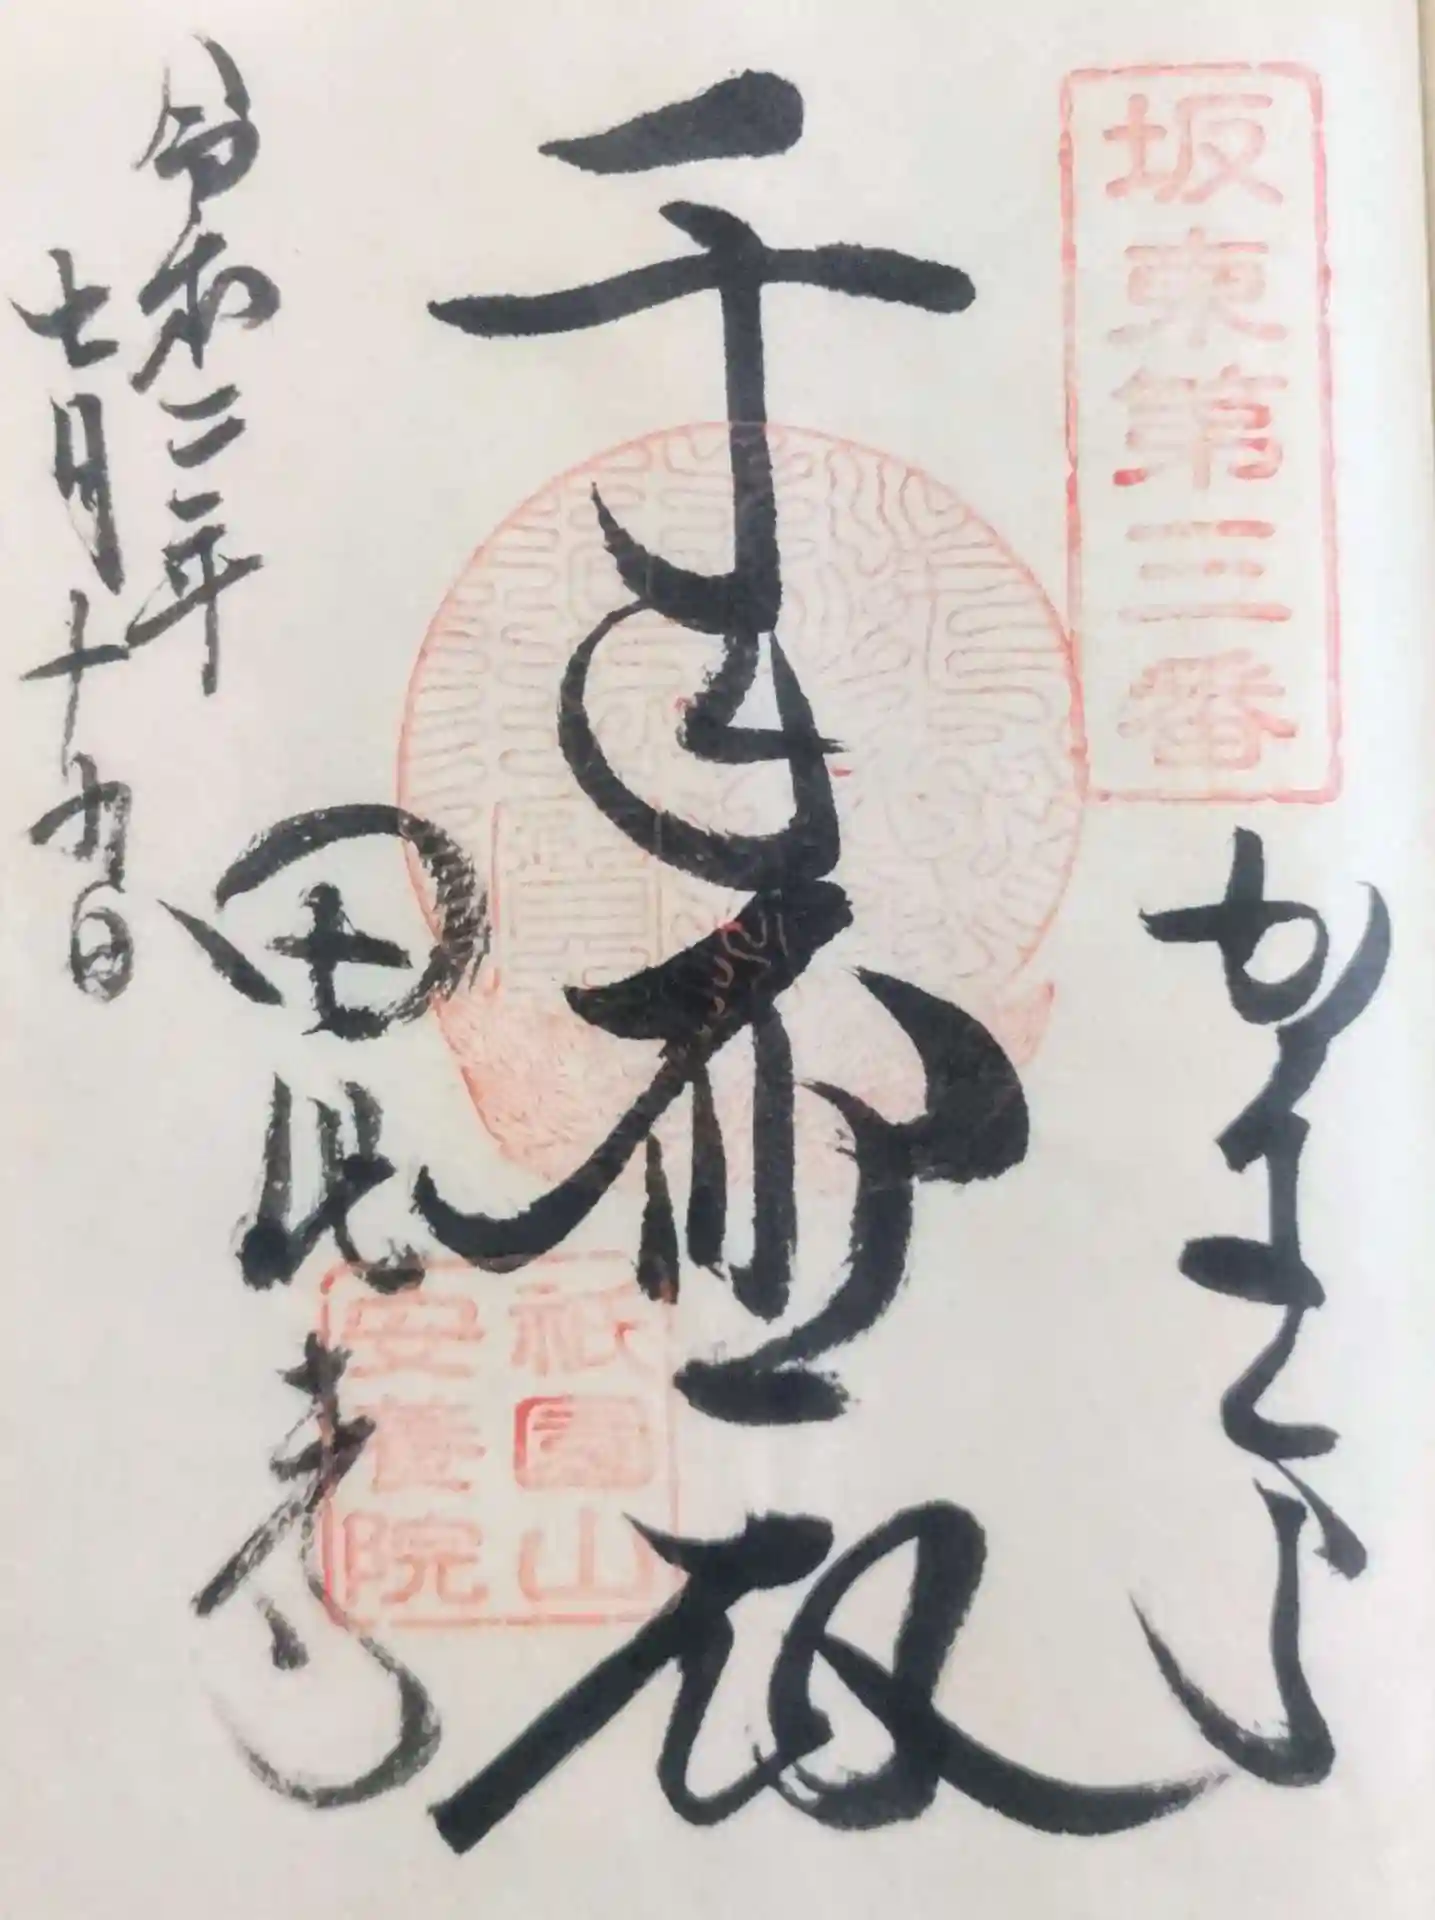 坂東第三番
かまくら
千手大悲殿
祇園山
安養院
田代寺
令和二年
七月十九日